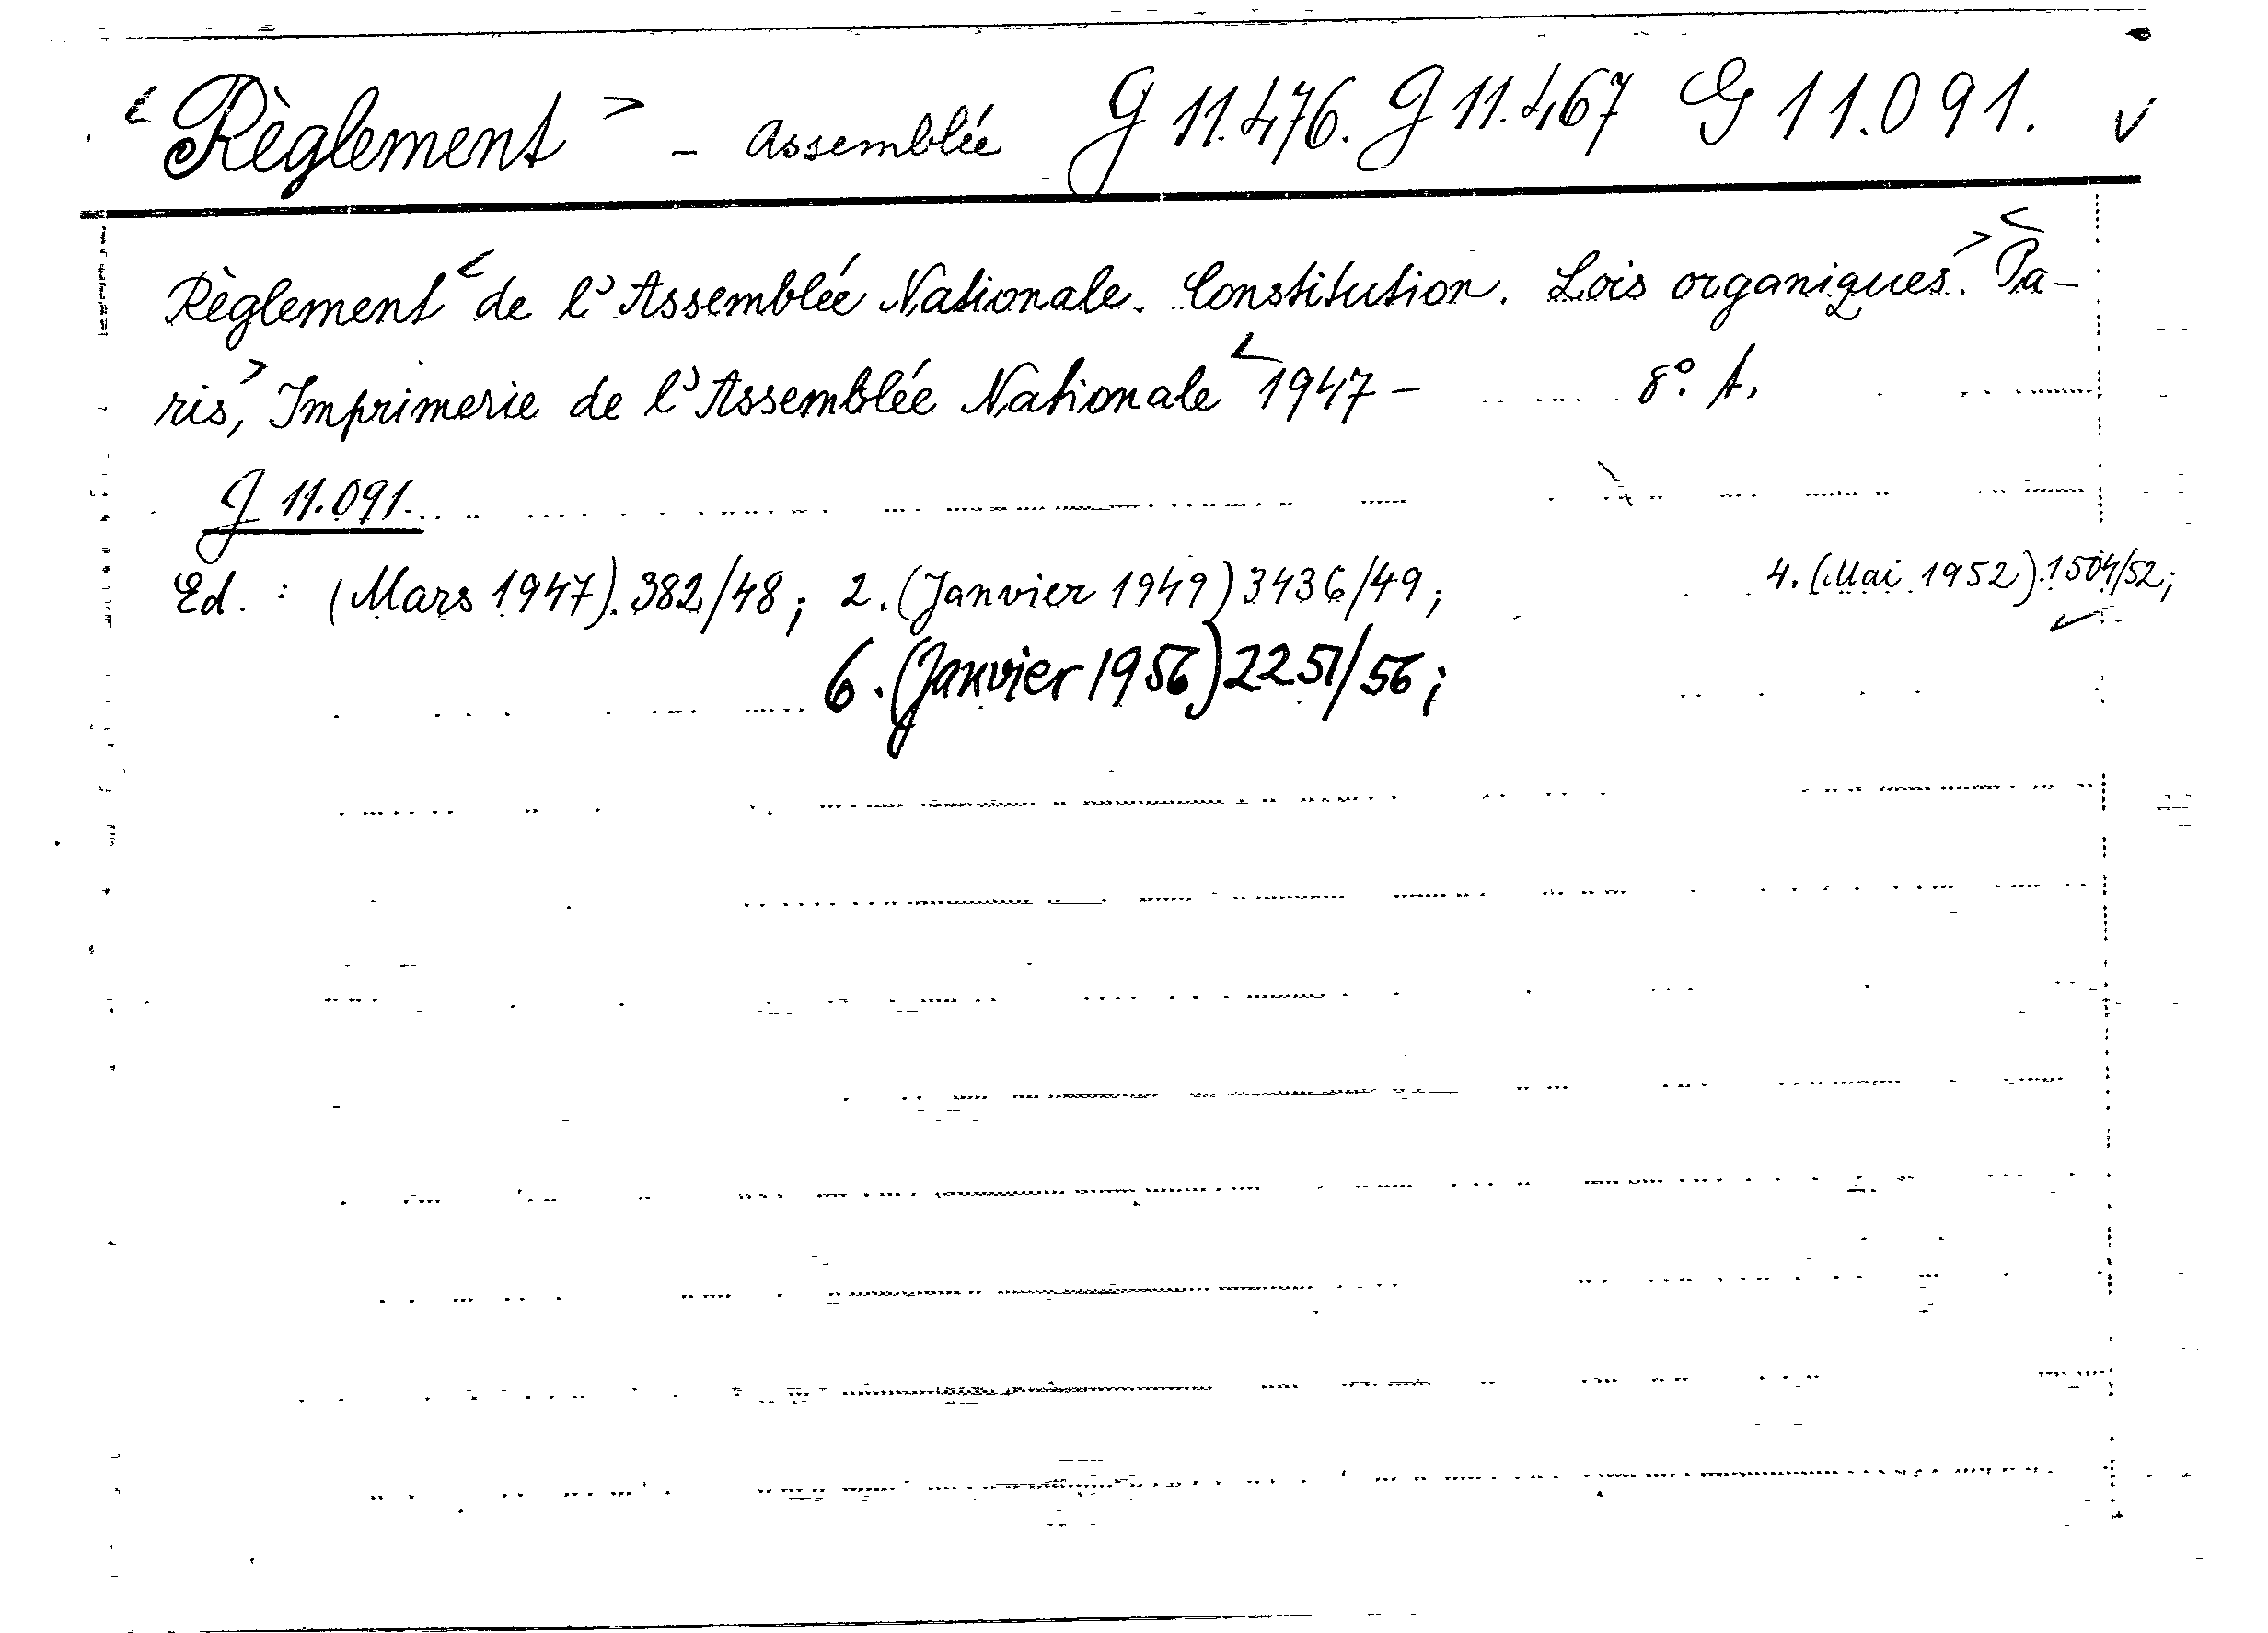 <Règlement> - Assemblée G 11.476. G 11.467 G 11.091. ✓
Règlement <de l'Assemblée Nationale. Constitution. Lois organiques.> <Pa-
ris,> Imprimerie de l'Assemblée Nationale <1947 - 8°. A.
G 11.091.
Ed. : (Mars 1947). 382/48; 2. (Janvier 1949) 3436/49; 4. (Mai 1952). 1504/52;
6. (Janvier 1956) 2251/56;